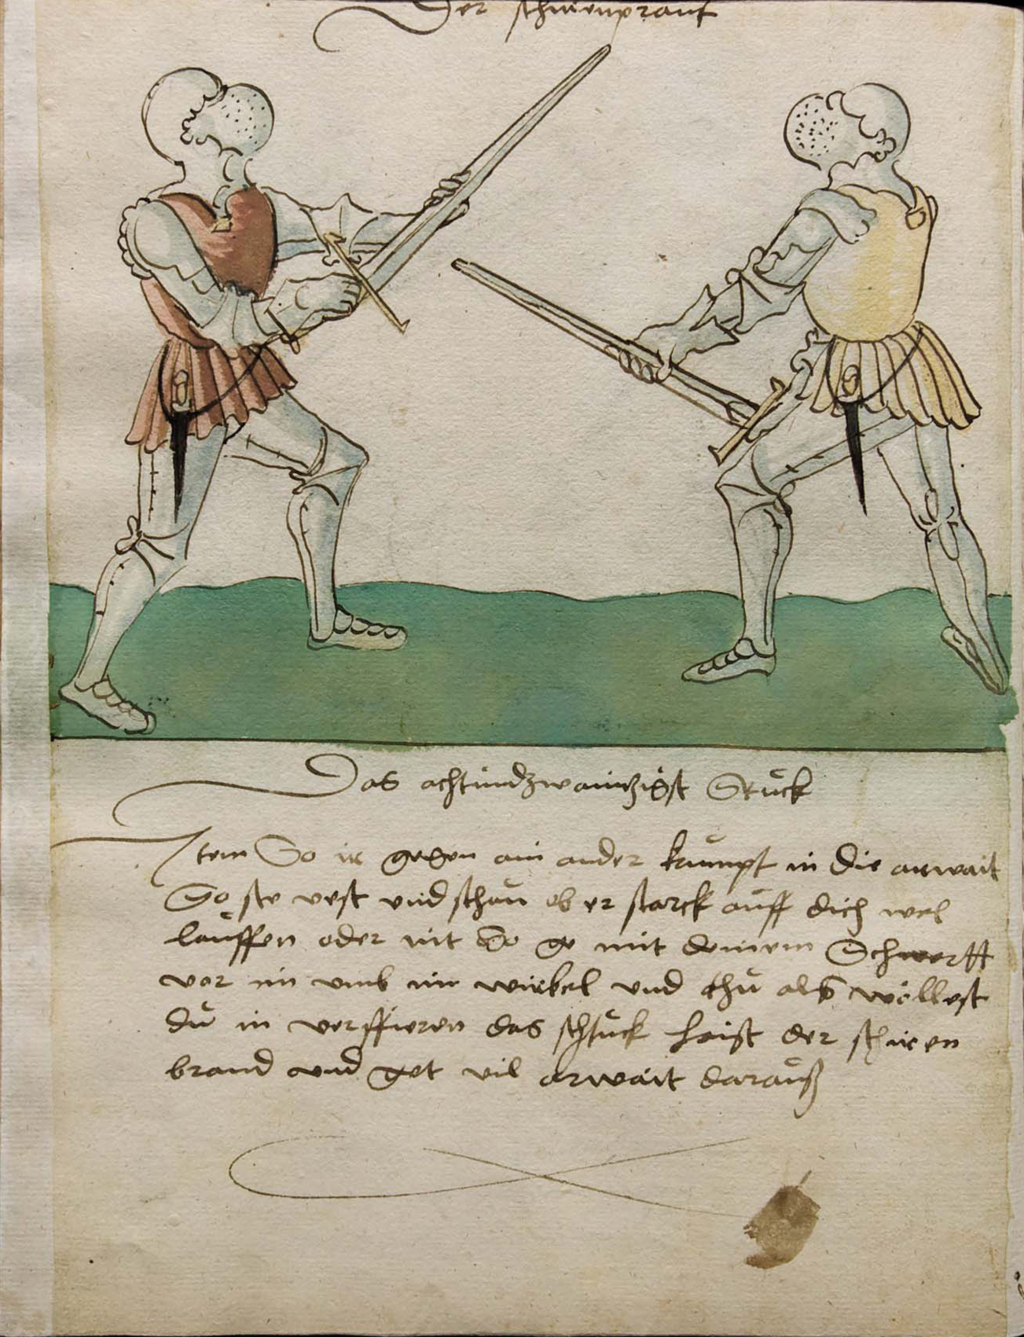 Der schirenprant
Das achtundzwaintzigist Stuck
Item So ir gegen ain ander kumpt in die arwait
So ste vest und schau ob er starck auff dich wel
lauffen oder nit So ge mit deinem Schwertt
vor im umb im wirbel und thu als wöllest
du in verffieren das schtuck haist der schiren
brand und get vil arwait darauß